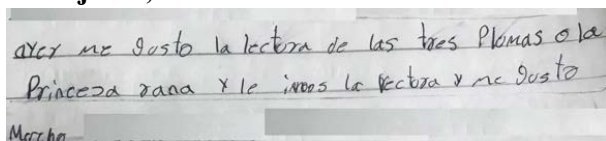 ayer me gusto la lectora de las tres Plomas o la
Princesa rana y le imos la lectora y me gusto